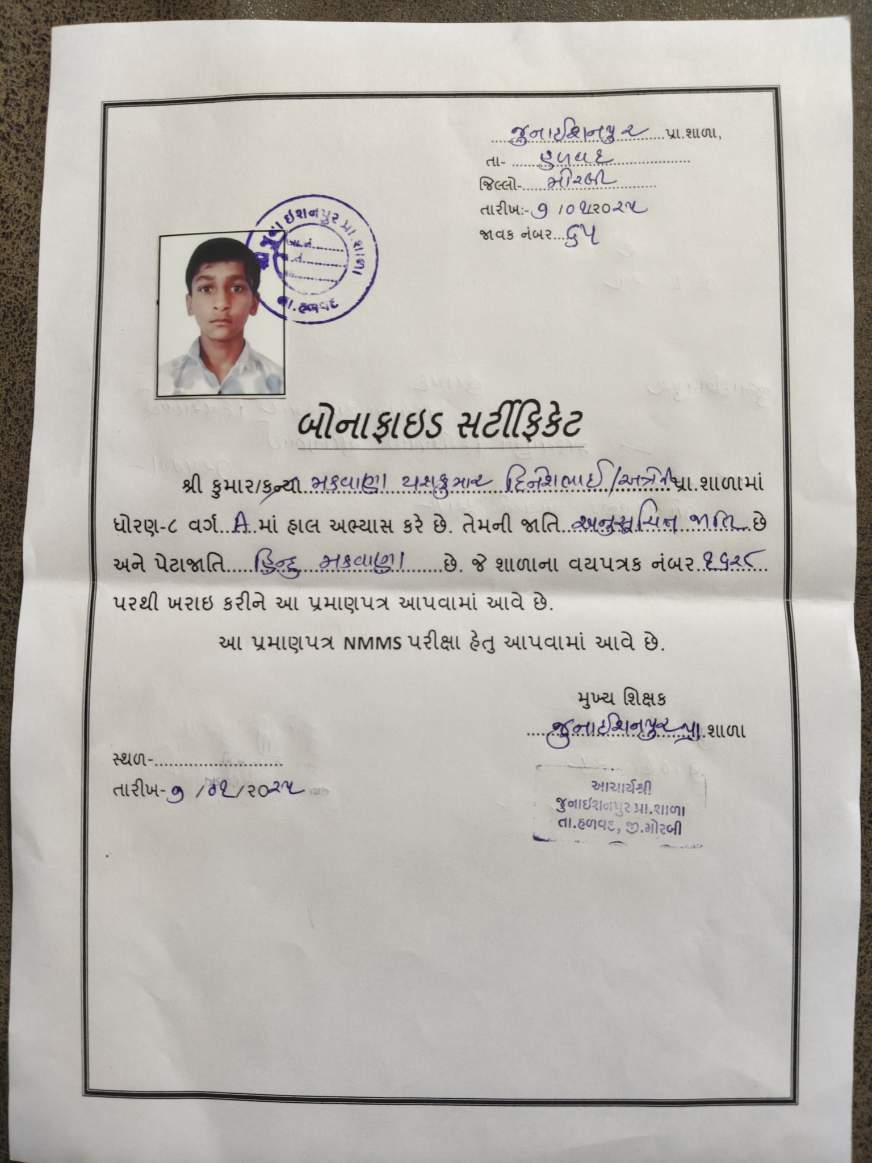 જુનાઈશનપુર પ્રા.શાળા,
તા- હળવદ
જિલ્લો- મોરબી
તારીખ:-૭ /૦૧/૨૦૨૫
જાવક નંબર...૬૫
જુના ઇશનપુર પ્રા. શાળા
તા.હળવદ
બોનાફાઇડ સર્ટીફિકેટ
શ્રી કુમાર/કન્યા મકવાણા યશકુમાર દિનેશભાઈ/અત્રેની પ્રા.શાળામાં
ધોરણ-૮ વર્ગ..A.માં હાલ અભ્યાસ કરે છે. તેમની જાતિ અનુસૂચિત જાતિ છે
અને પેટાજાતિ....હિન્દુ મકવાણા......છે. જે શાળાના વયપત્રક નંબર ૧૬૨૮
પરથી ખરાઇ કરીને આ પ્રમાણપત્ર આપવામાં આવે છે.
આ પ્રમાણપત્ર NMMS પરીક્ષા હેતુ આપવામાં આવે છે.
મુખ્ય શિક્ષક
જુનાઈશનપુર પ્રા.શાળા
સ્થળ-
તારીખ-૭ /૦૧/૨૦૨૫
આચાર્યશ્રી
જુનાઇશનપુર પ્રા.શાળા
તા.હળવદ, જી.મોરબી